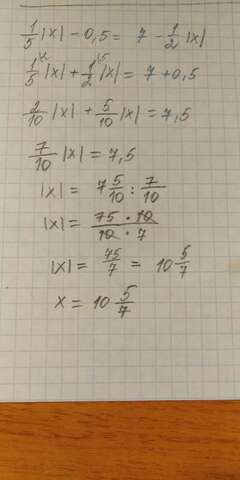 1/5 |x| - 0,5 = 7 - 1/2 |x|
1/5 \2 |x| + 1/2 \5 |x| = 7 + 0,5
2/10 |x| + 5/10 |x| = 7,5
7/10 |x| = 7,5
|x| = 7 5/10 : 7/10
|x| = 75 · 10 / 10 · 7
|x| = 75/7 = 10 5/7
x = 10 5/7